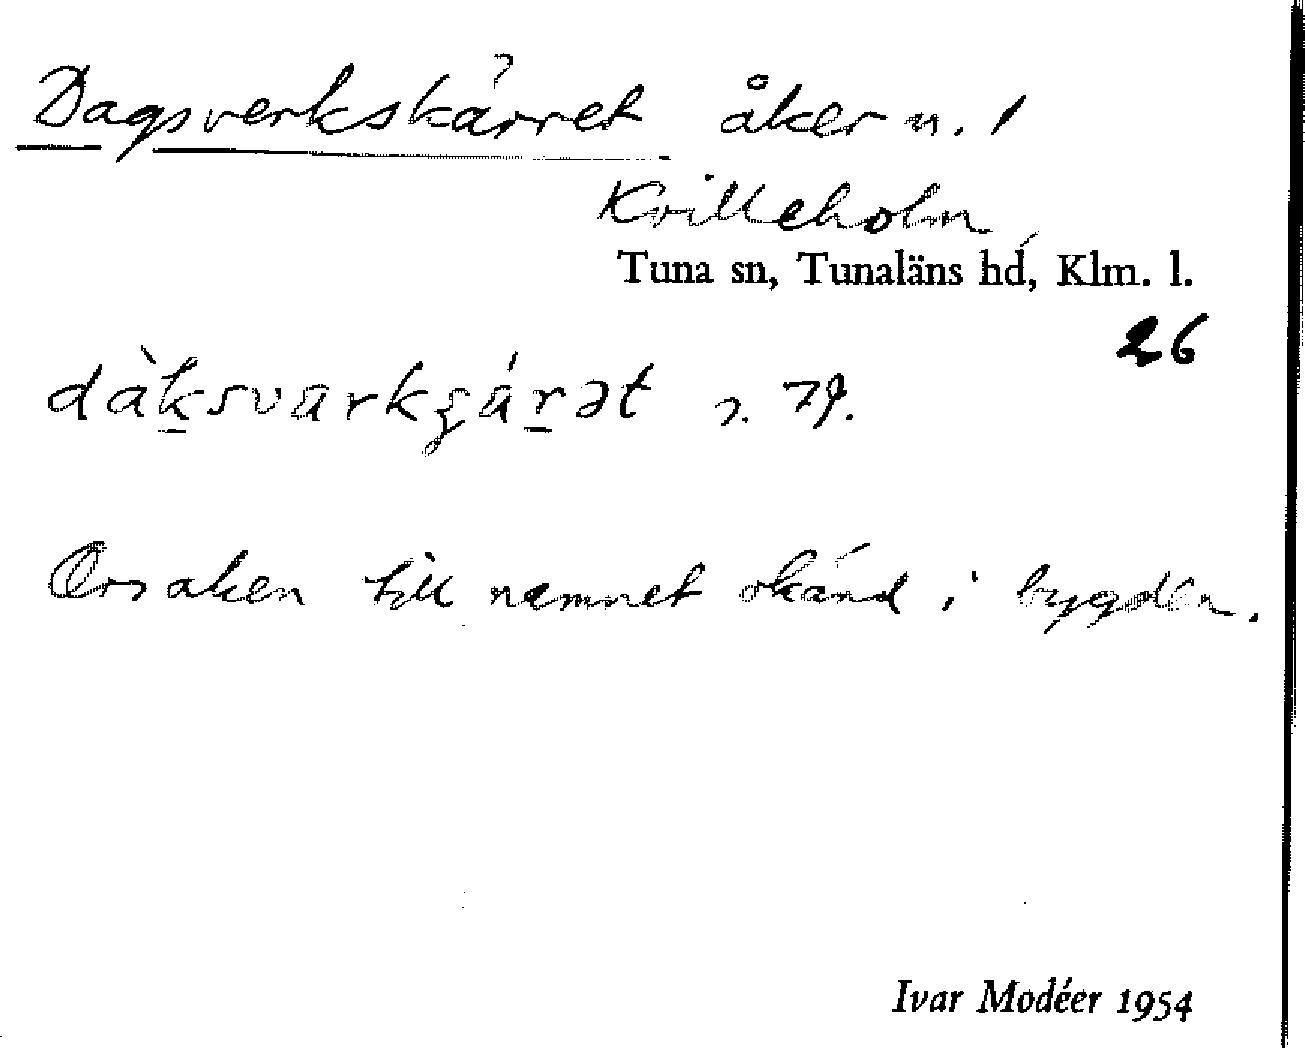 Dagsverkskärret åker n. 1
Krilleholm
Tuna sn, Tunaläns hd, Klm. l.
26
dàksvarkʂárət
Orsaken till namnet okänd i bygden.
Ivar Modéer 1954